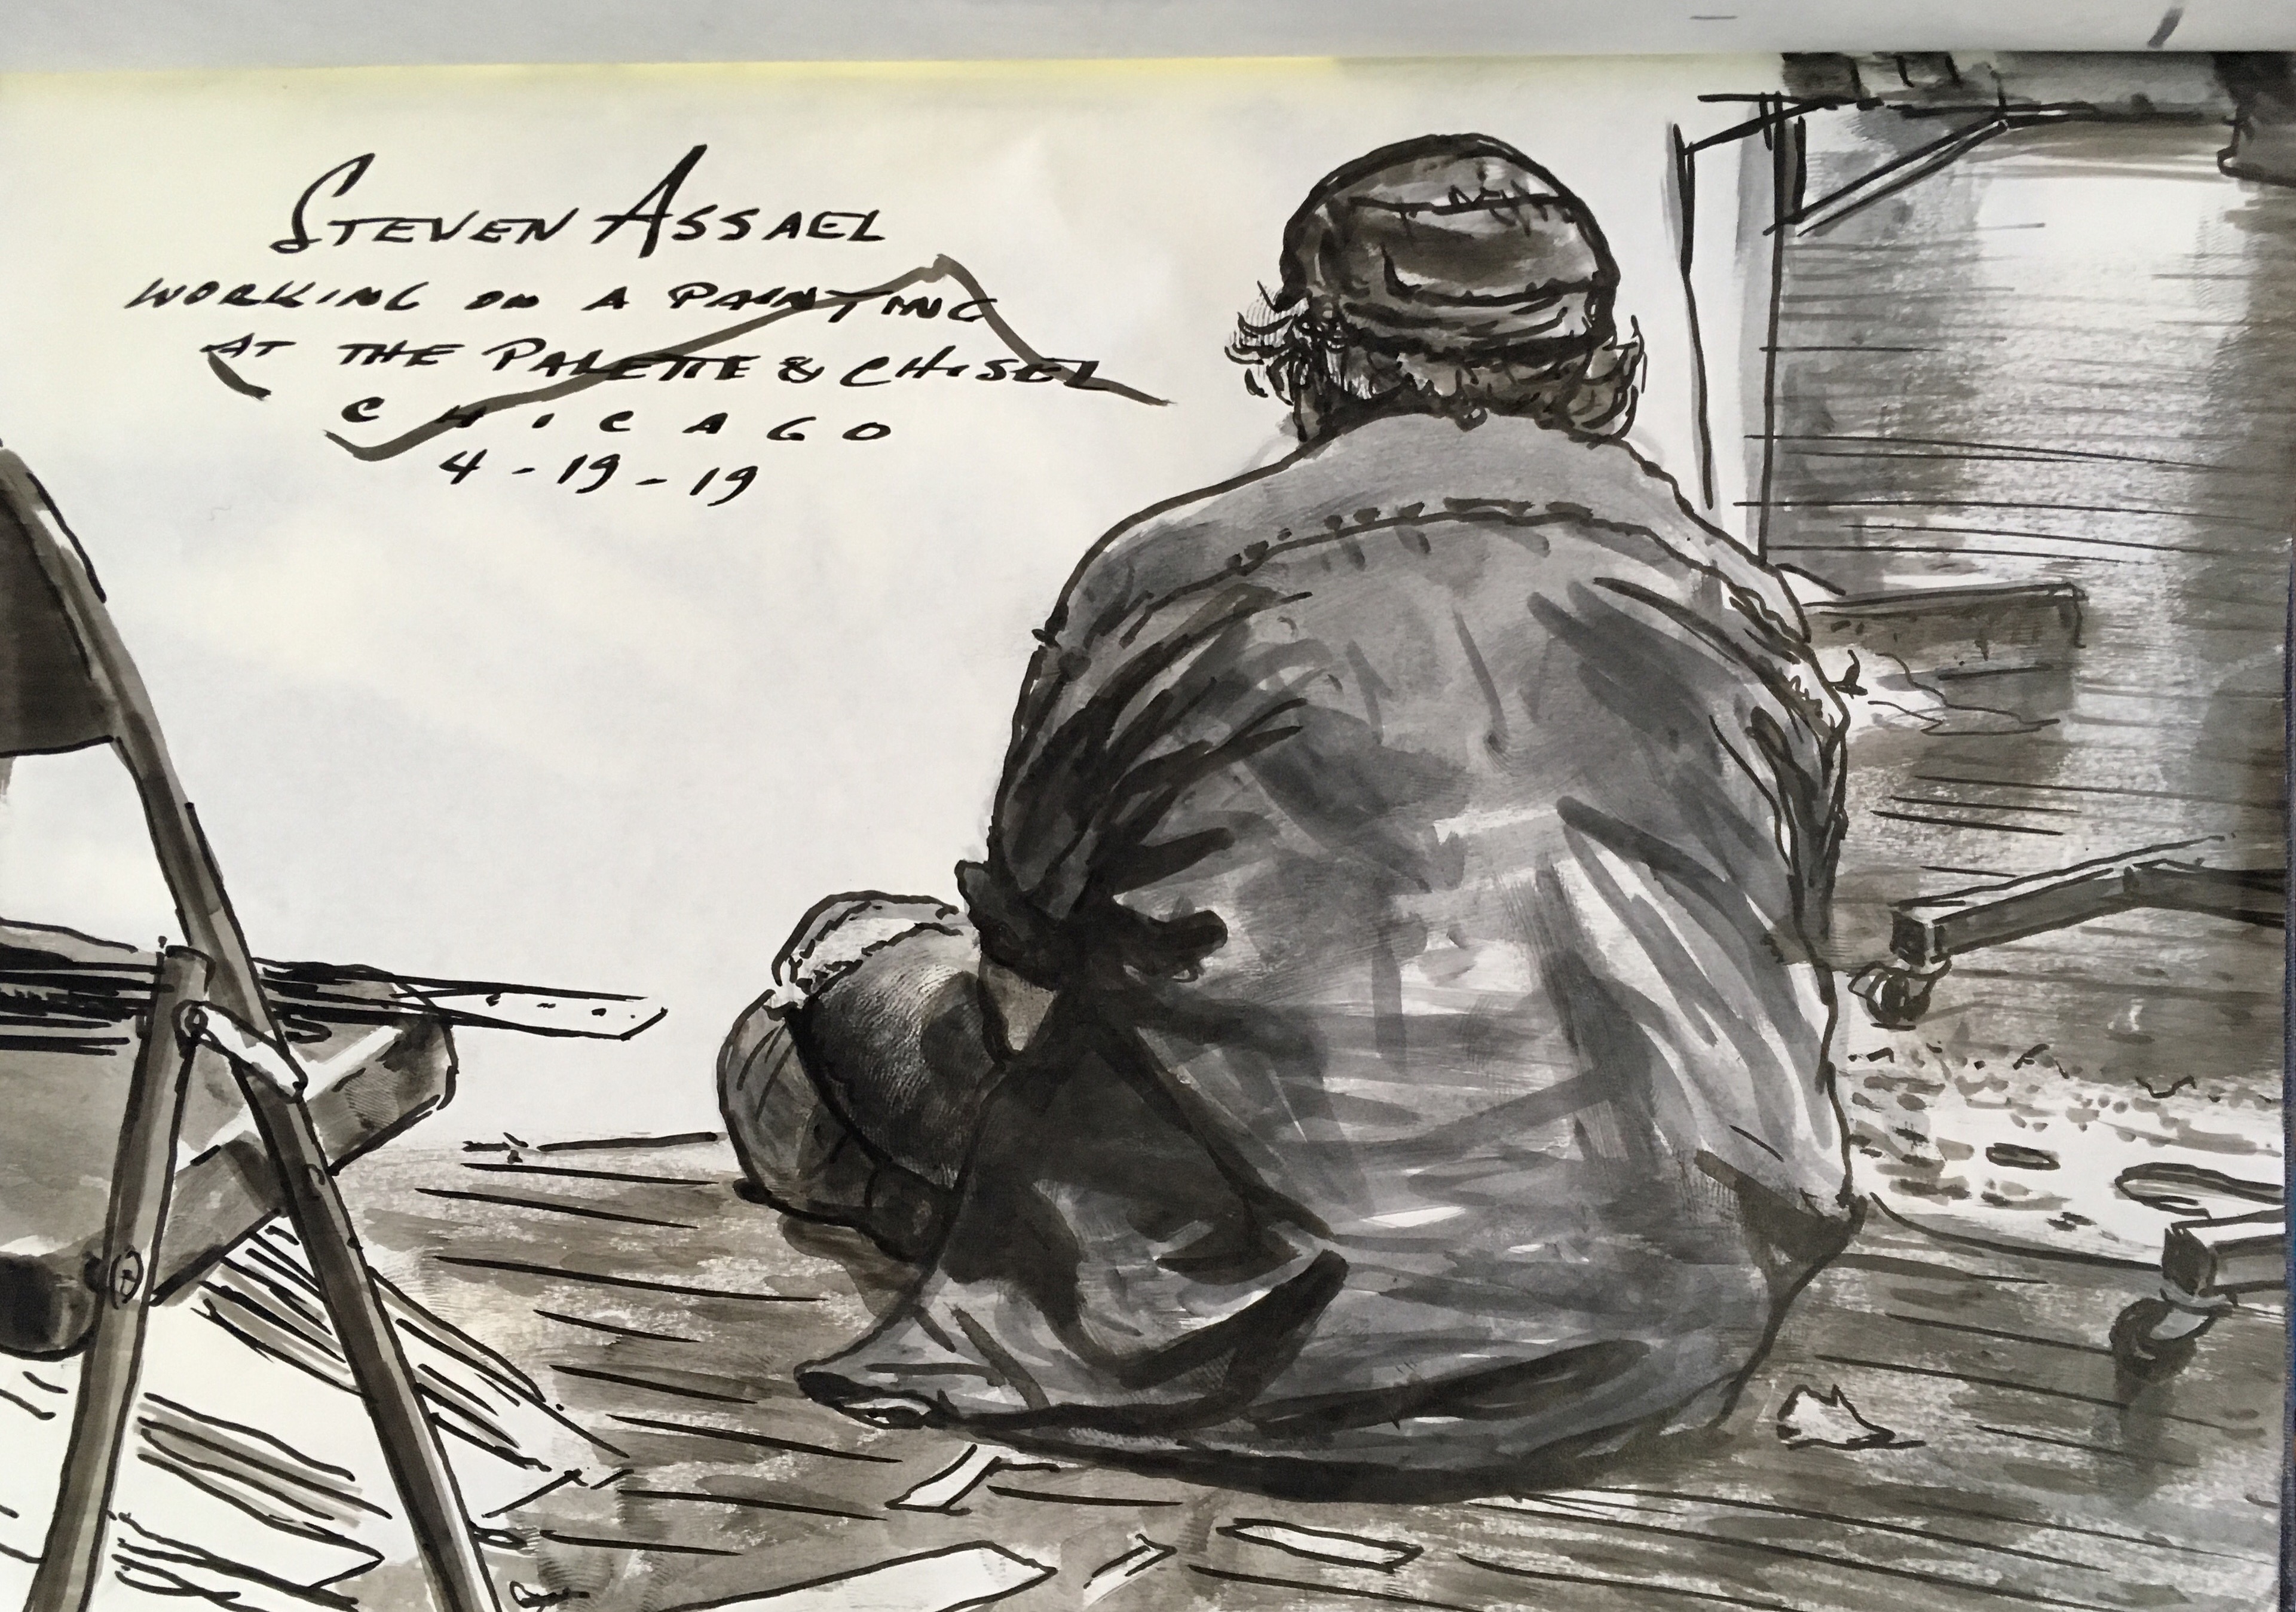 STEVEN ASSAEL
WORKING ON A PAINTING
AT THE PALETTE & CHISEL
CHICAGO
4-19-19